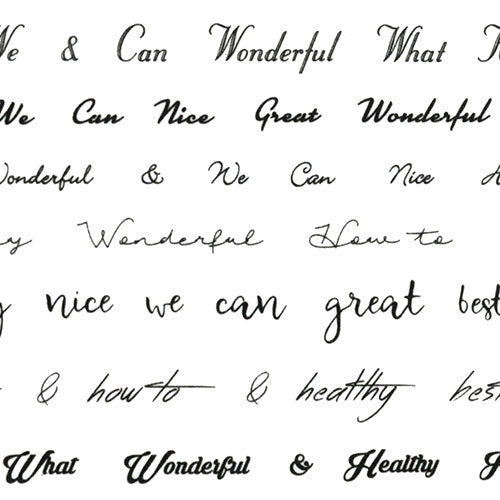 We & Can Wonderful What
We Can Nice Great Wonderful
Wonderful & We Can Nice
Wonderful How to
nice we can great best
& how to & healthy best
What Wonderful & Healthy